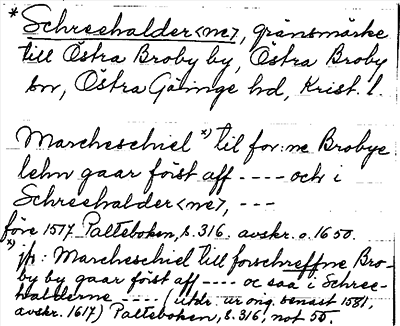 * Schreehalder<ne>, gränsmärke
till Östra Broby by, Östra Broby
sn, Östra Göinge hd, Krist. l.
Marcheschiel *) til for:ne Brobye
lehn gaar först aff ---- och i
Schreehalder<ne>, ---
före 1517 Palteboken, s. 316. avskr. o. 1650.
*) jfr: Marcheschiel till forschreffne Bro-
by by gaar först aff ---- oc saa i Schree-
halderne ---- (utdr. ur orig. senast 1581,
avskr. 1617) Palteboken, s. 316, not 50.